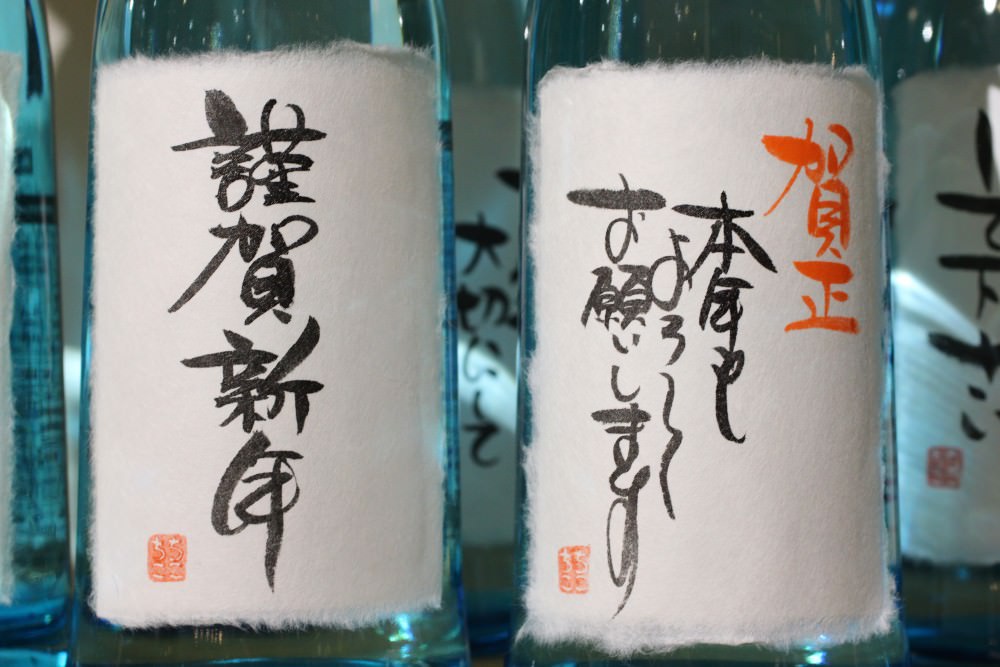 謹賀新年
賀正
本年も
よろしく
お願いします
大切にして